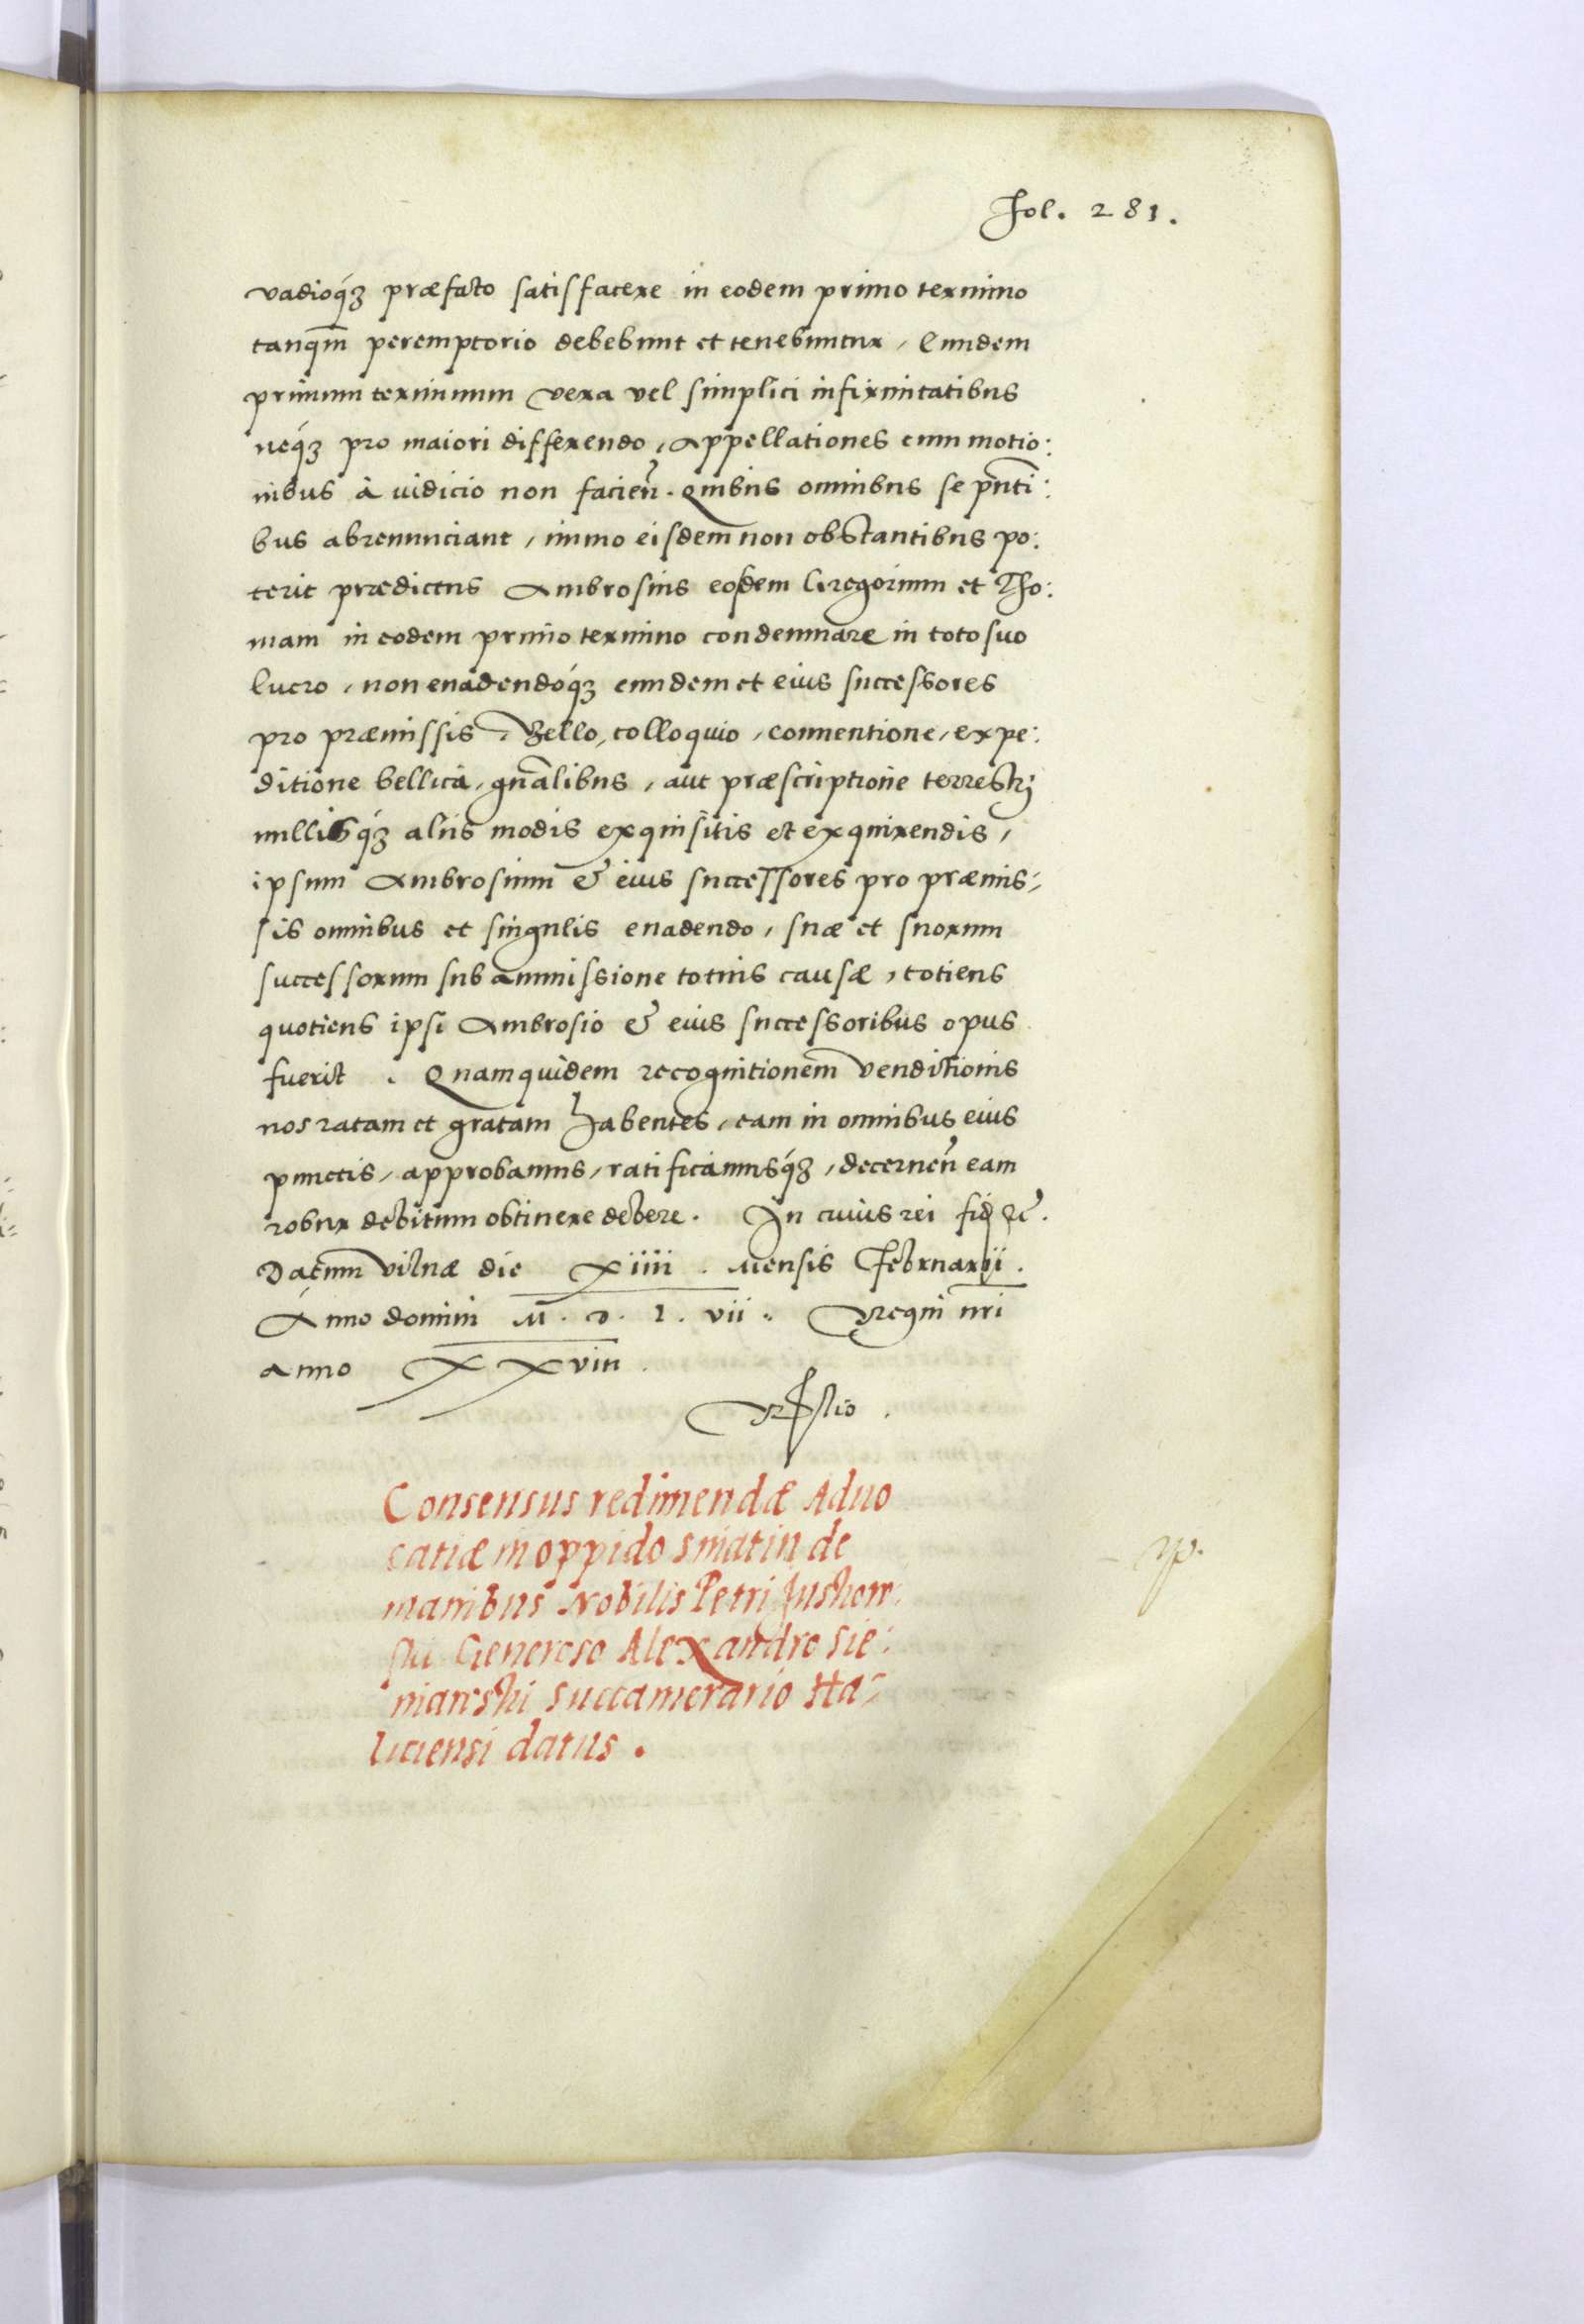 Fol. 281.
vadioq́ꝫ præfato satisfacere in eodem primo termino
tanqm̄ peremptorio debebunt et tenebuntur, Eundem
primum terminum vera vel simplici infirmitatibus
neq́ꝫ pro maiori differendo, appellationes cum motio:
nibus à iudicio non facieñ. Quibus omnibus se pn̄ti:
bus abrenunciant, immo eisdem non obstantibus po:
terit prædictus Ambrosius eosdem Gregorium et Tho:
mam in eodem primo termino condemnare in toto suo
lucro, non euadendoq́ꝫ eundem et eius successores
pro præmissis, Bello, colloquio, conuentione, expe:
ditione bellica, gn̄alibus, aut præscriptione terrestrj
nullisq́ꝫ aliis modis exquisitis et exquirendis,
ipsum Ambrosium & eius successores pro præmis:
sis omnibus et singulis euadendo, suæ et suorum
successorum sub ammissione totius causæ, totiens
quotiens ipsi Ambrosio & eius successoribus opus
fuerit. Quamquidem recognitionem venditionis
nos ratam et gratam habentes, eam in omnibus eius
punctis, approbamus, ratificamusq́ꝫ, decerneñ eam
robur debitum obtinere debere. In cuius rei fid ꝛc̃.
Datum vilnæ die Xiiii. mensis Februarii.
Anno domini M. D. l. vii. Regni nr̄i
anno XXviii.
Consensus redimendæ Aduo
catiæ in oppido Sniatin de
manibus Nobilis Petri
Generoso Alexandro Sie:
nianski Succamerario Ha:
liciensi datus.